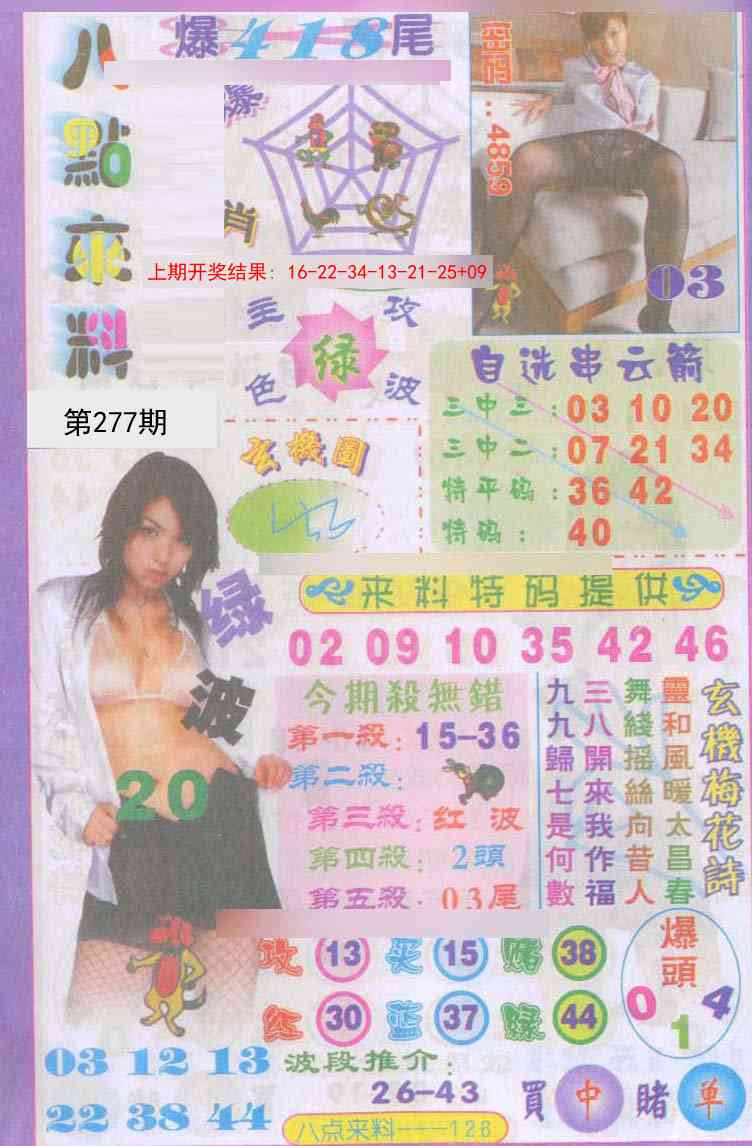 八點來料
爆418尾
爆肖
密码:4859
買03
上期开奖结果: 16-22-34-13-21-25+09
主攻
绿
色波
第277期
自选串云箭
三中三:03 10 20
三中二:07 21 34
特平码:36 42
特码:40
玄機圖
来料特码提供
02 09 10 35 42 46
绿波
20
今期殺無錯
第一殺:15-36
第二殺:
第三殺:红波
第四殺:2頭
第五殺:03尾
玄機梅花詩
靈和風暖太昌春
舞綫摇絲向昔人
三八開來我作福
九九歸七是何數
攻 13 买 15 赌 38
红 30 蓝 37 绿 44
爆頭
0 1 4
03 12 13
22 38 44
波段推介:
26-43
買中賭单
八点来料---128